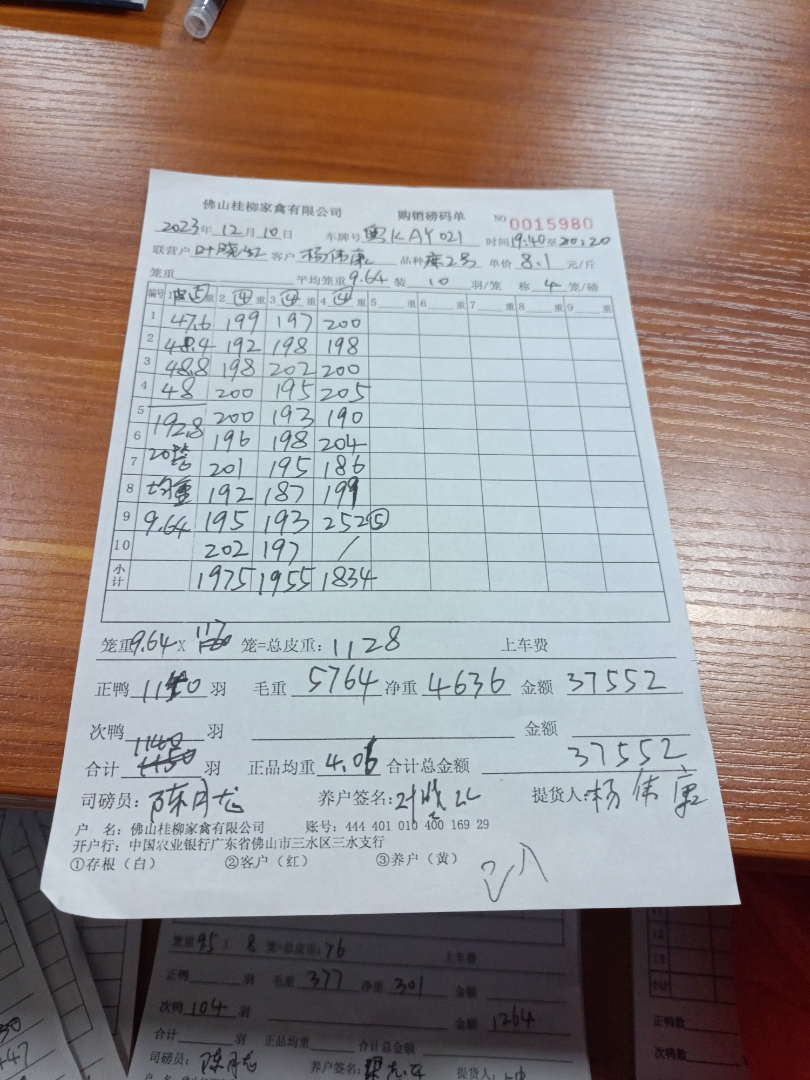 佛山桂柳家禽有限公司 购销磅码单 NO 0015980
2023年12月10日 车牌号 粤KAY021 时间19:40至20:20
联营户 叶晓红 客户 杨伟康 品种 麻2号 单价 8.1 元/斤
笼重 平均笼重 9.64 装 10 羽/笼 称 4 笼/磅
编号 1 重 2 ④ 重 3 ④ 重 4 ④ 重 5 重 6 重 7 重 8 重 9 重
1 47.6 199 197 200
2 48.4 192 198 198
3 48.8 198 202 200
4 48 200 195 205
5 192.8 200 193 190
6 196 198 204
7 20笼 201 195 186
8 均重 192 187 199
9 9.64 195 193 252⑤
10 202 197 /
小计 1975 1955 1834
笼重9.64 X 117 笼=总皮重：1128 上车费
正鸭 羽 毛重 5764 净重 4636 金额 37552
次鸭 羽 金额
合计 1140 羽 正品均重 4.06 合计总金额 37552
司磅员：陈月龙 养户签名：叶晓红 提货人：杨伟康
户 名：佛山桂柳家禽有限公司 账号：444 401 010 400 169 29
开户行：中国农业银行广东省佛山市三水区三水支行
①存根（白） ②客户（红） ③养户（黄）
笼重 95 X 8 笼=总皮重：76 上车费
正鸭 羽 毛重 377 净重 301 金额
次鸭 104 羽 金额 1264
合计 羽 正品均重 合计总金额
司磅员：陈月龙 养户签名： 提货人：
小计
正鸭数
次鸭数